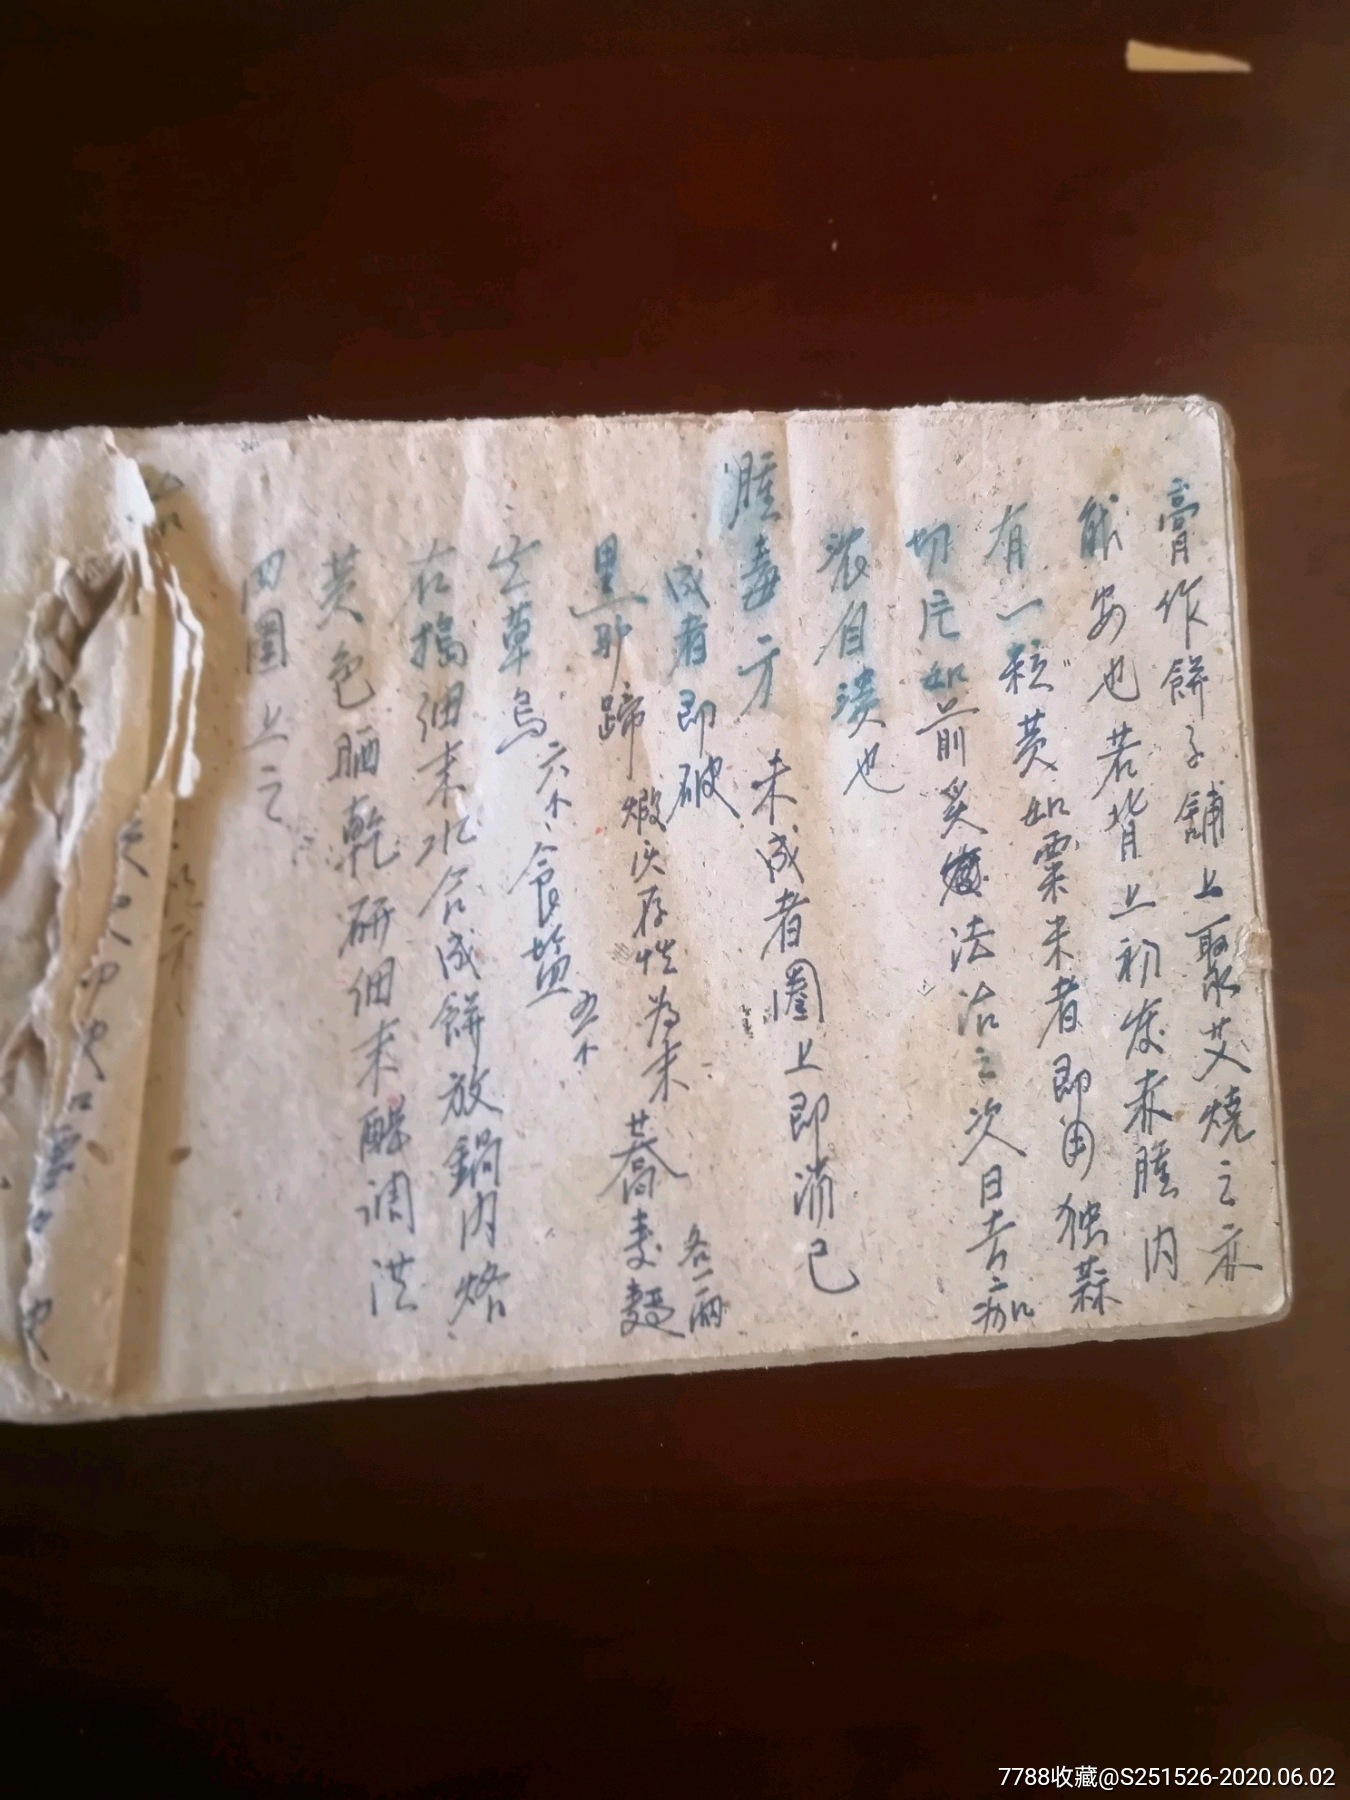 膏作餅子鋪上聚艾燒之亦
能安也若背上初發赤腫内
有一粒黄如粟米者即用独蒜
切片如前炙法治之次日去痂
浓自潰也
腫毒方 未成者圈上即消已
成者即破
黑驴蹄煅灰存性为末 蕎麦麵各一兩
生草烏六个食盐五个
右搗细末水合成餅放鍋内烙
黄色晒乾研细末醋调洪
四圍上之
7788收藏@S251526-2020.06.02